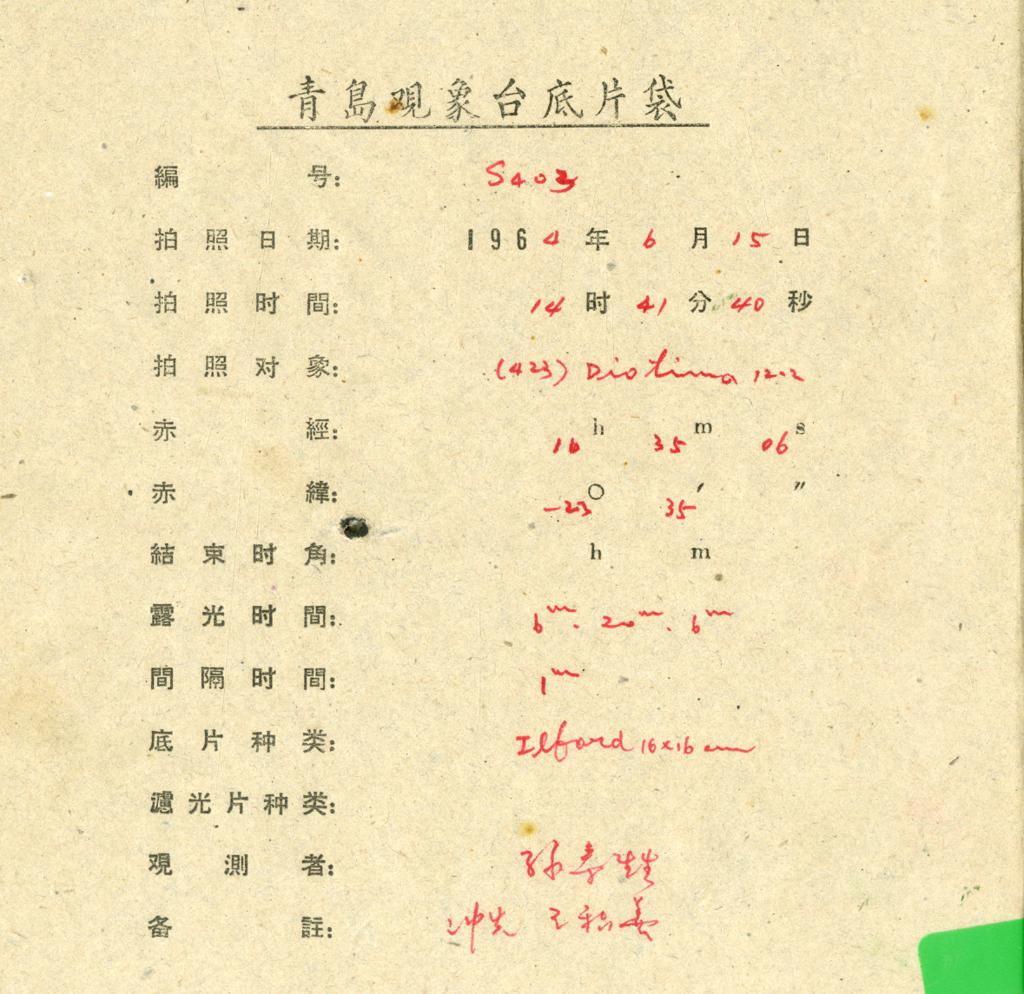 青島观象台底片袋
編号: S403
拍照日期: 1964年6月15日
拍照时間: 14时41分40秒
拍照对象: (423) Diotima 12.2
赤經: 16h 35m 06s
赤緯: -23° 35′ ″
結束时角: h m
露光时間: 6m. 20m. 6m
間隔时間: 1m
底片种类: Ilford 16x16 cm
濾光片种类:
观測者: 孙寿
备註: 冲洗 王